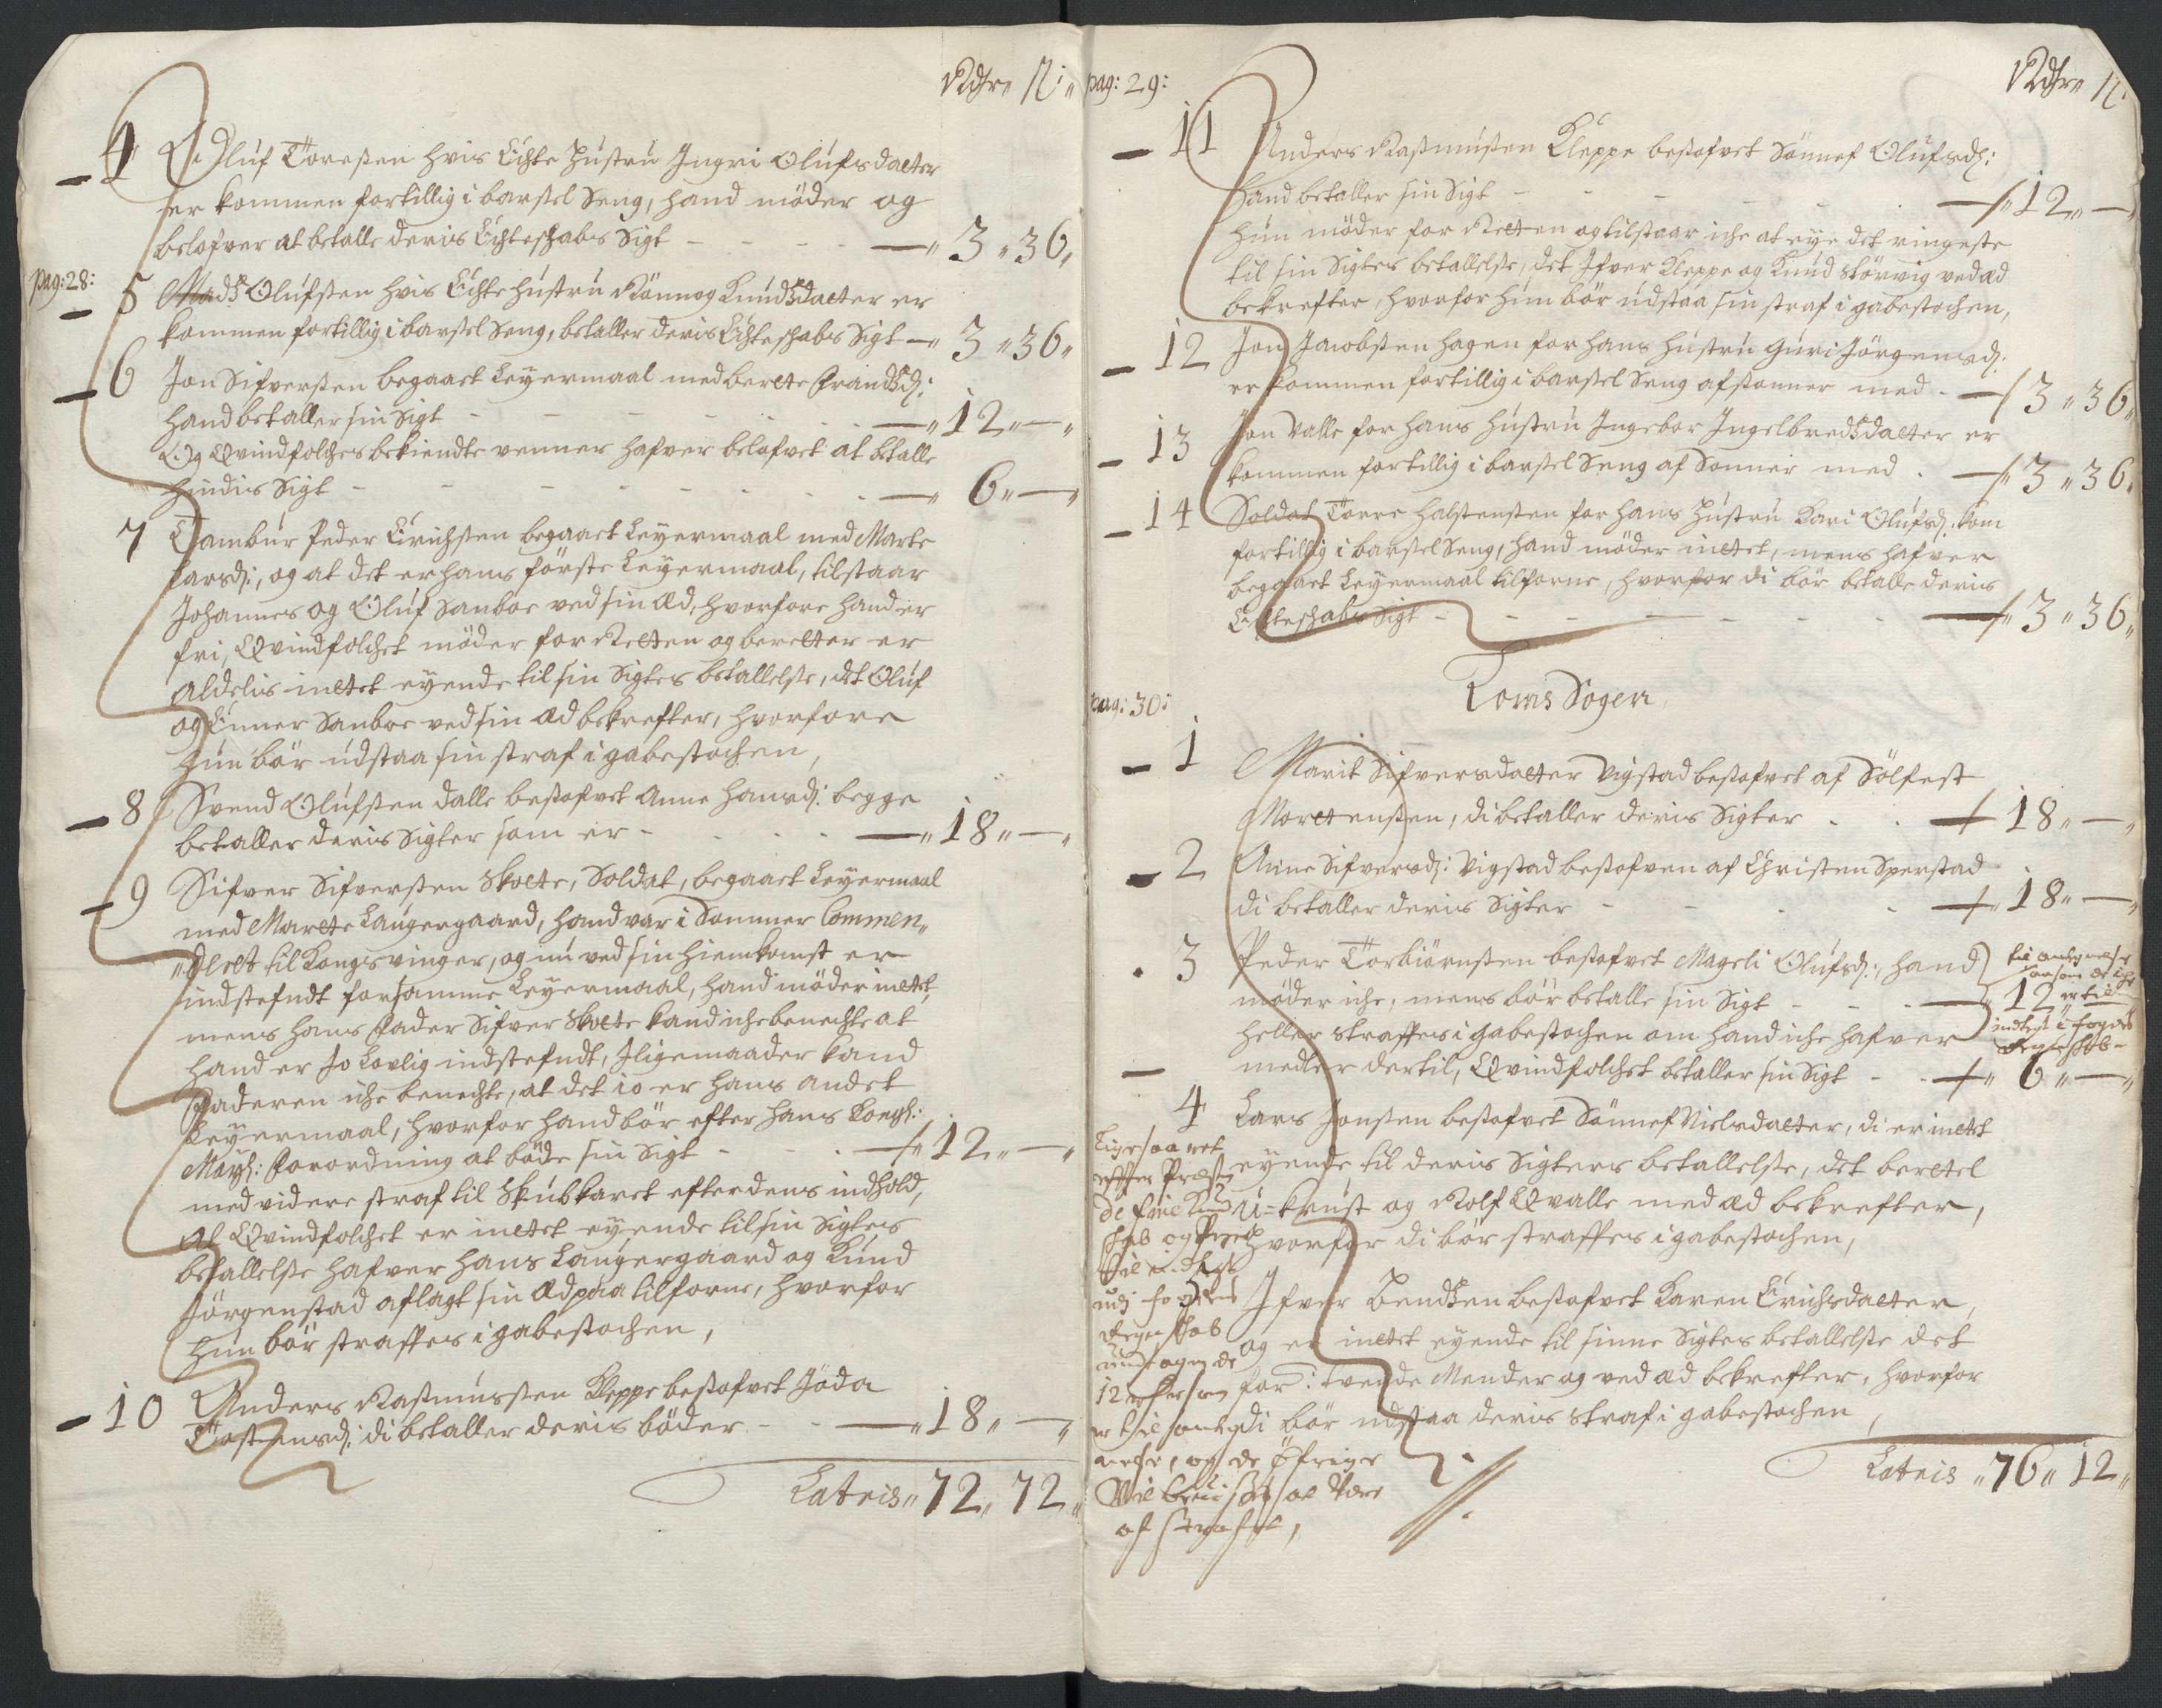 Rdr „ ß „
4 Oluf Toresen hvis Eichte Hustru Ingri Olufsdatter
er kommen fortillig i barsel Seng, hand möder og
belofver at betalle deris Eichteschabs Sigt - - - - —„ 3 „ 36„
pag: 28:
5 Madtz Olufsen hvis Eichte hustru Rönnog Knudtzdatter er
kommen fortillig i barsel Seng, betaller deris Eichteschabs Sigt —„ 3 „ 36„
6 Jon Sifversen begaaet Leyermaal med berete Frandtzd:
hand betaller sin Sigt - - - - —„ 12„ —„
Og Qvindfolches bekiendte venner hafver belofvet at betalle
hindis Sigt - - - - —„ 6„ —„
7 Tambur Peder Erichsen begaaet Leyermaal med Marte
Larsd:, og at det er hans förste Leyermaal, tilstaar
Johannes og Oluf Sanboe ved sin Æd, hvorfore hand er
fri, Qvindfolchet möder for Retten og beretter er
aldelis intet eyende til sin Sigtes betallelse, det Oluf
og Einner Sanboe ved sin Æd bekrefter, hvorfore
hun bör udstaa sin straf i gabestochen,
8 Svend Olufsen dalle besofvet Anne Hansd: begge
betaller deris Sigter som er - - - - —„ 18„ —„
9 Sifver Sifversen Skotte, Soldat, begaaet Leyermaal
med Marete Laugergaard, hand var i Sommer Commen„
„deret til Kongsvinger, og nu ved sin hiemkomst er
indstefndt for samme Leyermaal, hand möder intet,
mens hans Fader Sifver Skotte kand iche benechte at
hand er Jo Lovlig indstefndt, Iligemaader kand
Faderen iche benechte, at det io er hans andet
Leyermaal, hvorfor hand bör efter hans Kongl:
Mayt: Forordning at böde sin Sigt - - —„ 12„ —„
med videre straf til Skubkaret efter dens indhold,
At Qvindfolchet er intet eyende til sin Sigtes
betallelse hafver Hans Laugergaard og Knud
Jörgenstad aflagt sin Æd paa tilforne, hvorfor
hun bör straffes i gabestochen,
10 Anders Rasmussen Kleppe besofvet Jöda
Tostensd: di betaller deris böder - - —„ 18„ —„
Latris „ 72„ 72„
pag: 29:
Rdr „ ß
11 Anders Rasmussen Kleppe besofvet Sönnef Olufsd:
hand betaller sin Sigt - - - - —„ 12„ —„
hun möder for Retten og tilstaar iche at eye det ringeste
til sin Sigtes betallelse, det Ifver Kleppe og Knud Störvig ved æd
bekrefter, hvorfor hun bör udstaa sin straf i gabestochen,
12 Jon Jacobsen hagen for hans hustru Guri Jörgensd:
er kommen fortillig i barsel Seng afsonner med - —„ 3 „ 36„
13 Jon Valle for hans hustru Ingebor Ingelbredtzdatter er
kommen fortillig i barsel Seng af Sonner med - —„ 3 „ 36„
14 Soldat Torre Halstensen for hans Hustru Kari Olufsd: kom
fortillig i barsel Seng, hand möder intet, mens hafver
begaaet Leyermaal tilforne, hvorfor di bör betalle deris
Eichteschabs Sigt - - - - —„ 3 „ 36„
Loms Sogen
pag: 30:
1 Marit Sifversdatter Vigstad besofvet af Sölfest
Mortensen, di betaller deris Sigter - - —„ 18„ —„
2 Anne Sifversd: Vigstad besofven af Christen Sperstad
di betaller deris Sigter - - - —„ 18„ —„
3 Peder Torbiörnsen besofvet Mageli Olufsd:, hand
möder iche, mens bör betalle sin Sigt - - —„ 12„
heller straffes i gabestochen om hand iche hafver
medler dertil, Qvindfolchet betaller sin Sigt - - —„ 6„ —„
indtegt i fogdens
Regenschab -
4 Lars Jonsen besofvet Sönnef Nielsdatter, di er intet
eyende til deris Sigters betallelse, det beretet
knust og Rolf Qvalle med æd bekrefter,
hvorfor di bör straffes i gabestochen,
5 Ifver Bendtzen besofvet Karen Erichsdatter,
og er intet eyende til sinne Sigtes betallelse det
for: tvende Mender og ved æd bekrefter, hvorfor
di bör udstaa deris straf i gabestochen,
udj fogdens
Regenschab
og de öfrige
Vil
af straffet,
Latris „ 76„ 12„